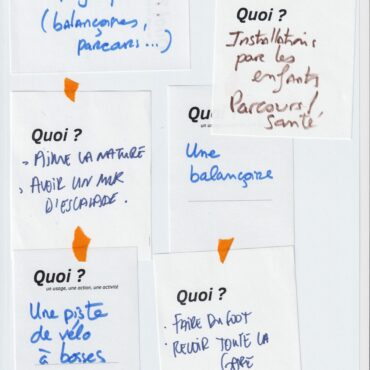 (balançoires,
parcours...)
Quoi ?
Installations
par les
enfants
Parcours/
santé
Quoi ?
AIME LA NATURE
AVOIR UN MUR
D'ESCALADE.
Quoi ?
Une
balançoire
Quoi ?
un usage, une action, une activité
Une piste
de vélo
à bosses
Quoi ?
. FAIRE DU FOOT
. REVOIR TOUTE LA
GARE